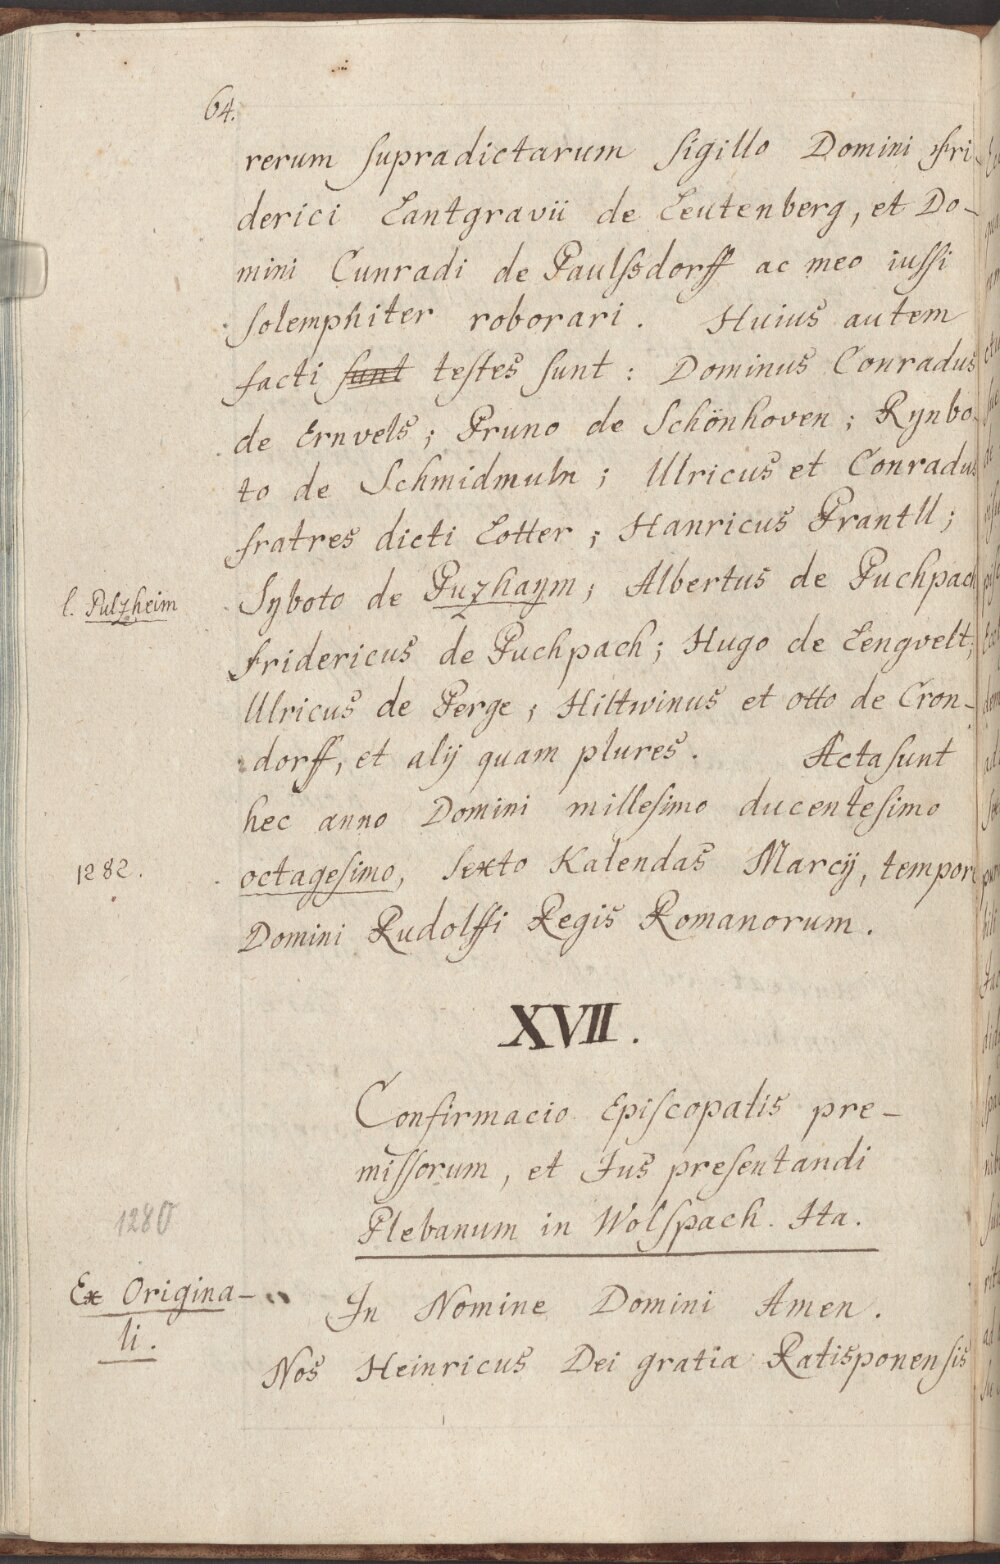 64.
rerum supradictarum sigillo Domini Fri-
derici Lantgravii de Leutenberg, et Do-
mini Cunradi de Paulssdorff ac meo iussi
solempniter roborari. Huius autem
facti sunt testes sunt : Dominus Conradus
de Ernvels ; Pruno de Schönhoven ; Rynbo-
to de Schmidmuln ; Ulricus et Conradus
fratres dicti Lotter ; Hanricus Prantll ;
l. Pulzheim
Syboto de Puzhaym ; Albertus de Puchpach
Fridericus de Puchpach ; Hugo de Lengvelt ;
Ulricus de Perge ; Hiltwinus et Otto de Cron-
dorff, et alij quam plures. Acta sunt
hec anno Domini millesimo ducentesimo
1282.
octagesimo, Sexto Kalendas Marcij, tempore
Domini Rudolffi Regis Romanorum.
XVII.
Confirmacio Episcopalis pre-
missorum, et Jus presentandi
1280
Plebanum in Wolspach. Ita.
Ex Origina-
li.
In Nomine Domini Amen.
Nos Heinricus Dei gratia Ratisponensis